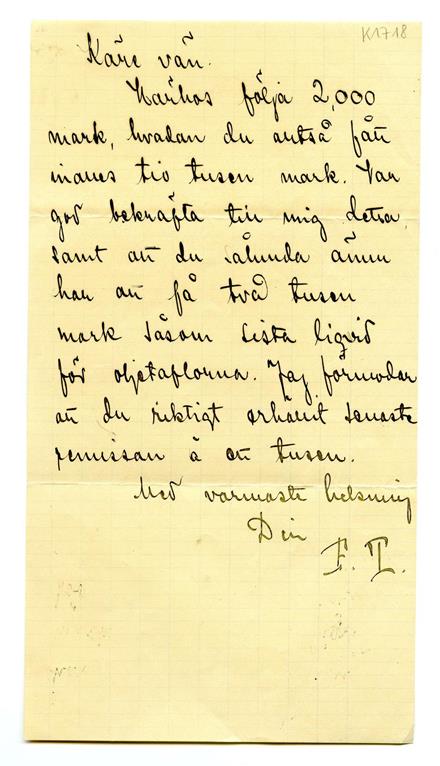 K1718
Käre vän.
Härhos följa 2,000
mark, hvadan du altså fått
inalles tio tusen mark. Var
god bekräfta till mig detta,
samt att du sålunda ännu
har att få två tusen
mark såsom sista liqvid
för oljetaflorna. Jag förmodar
att du riktigt erhållit senaste
remissan å ett tusen.
Med varmaste helsning
Din